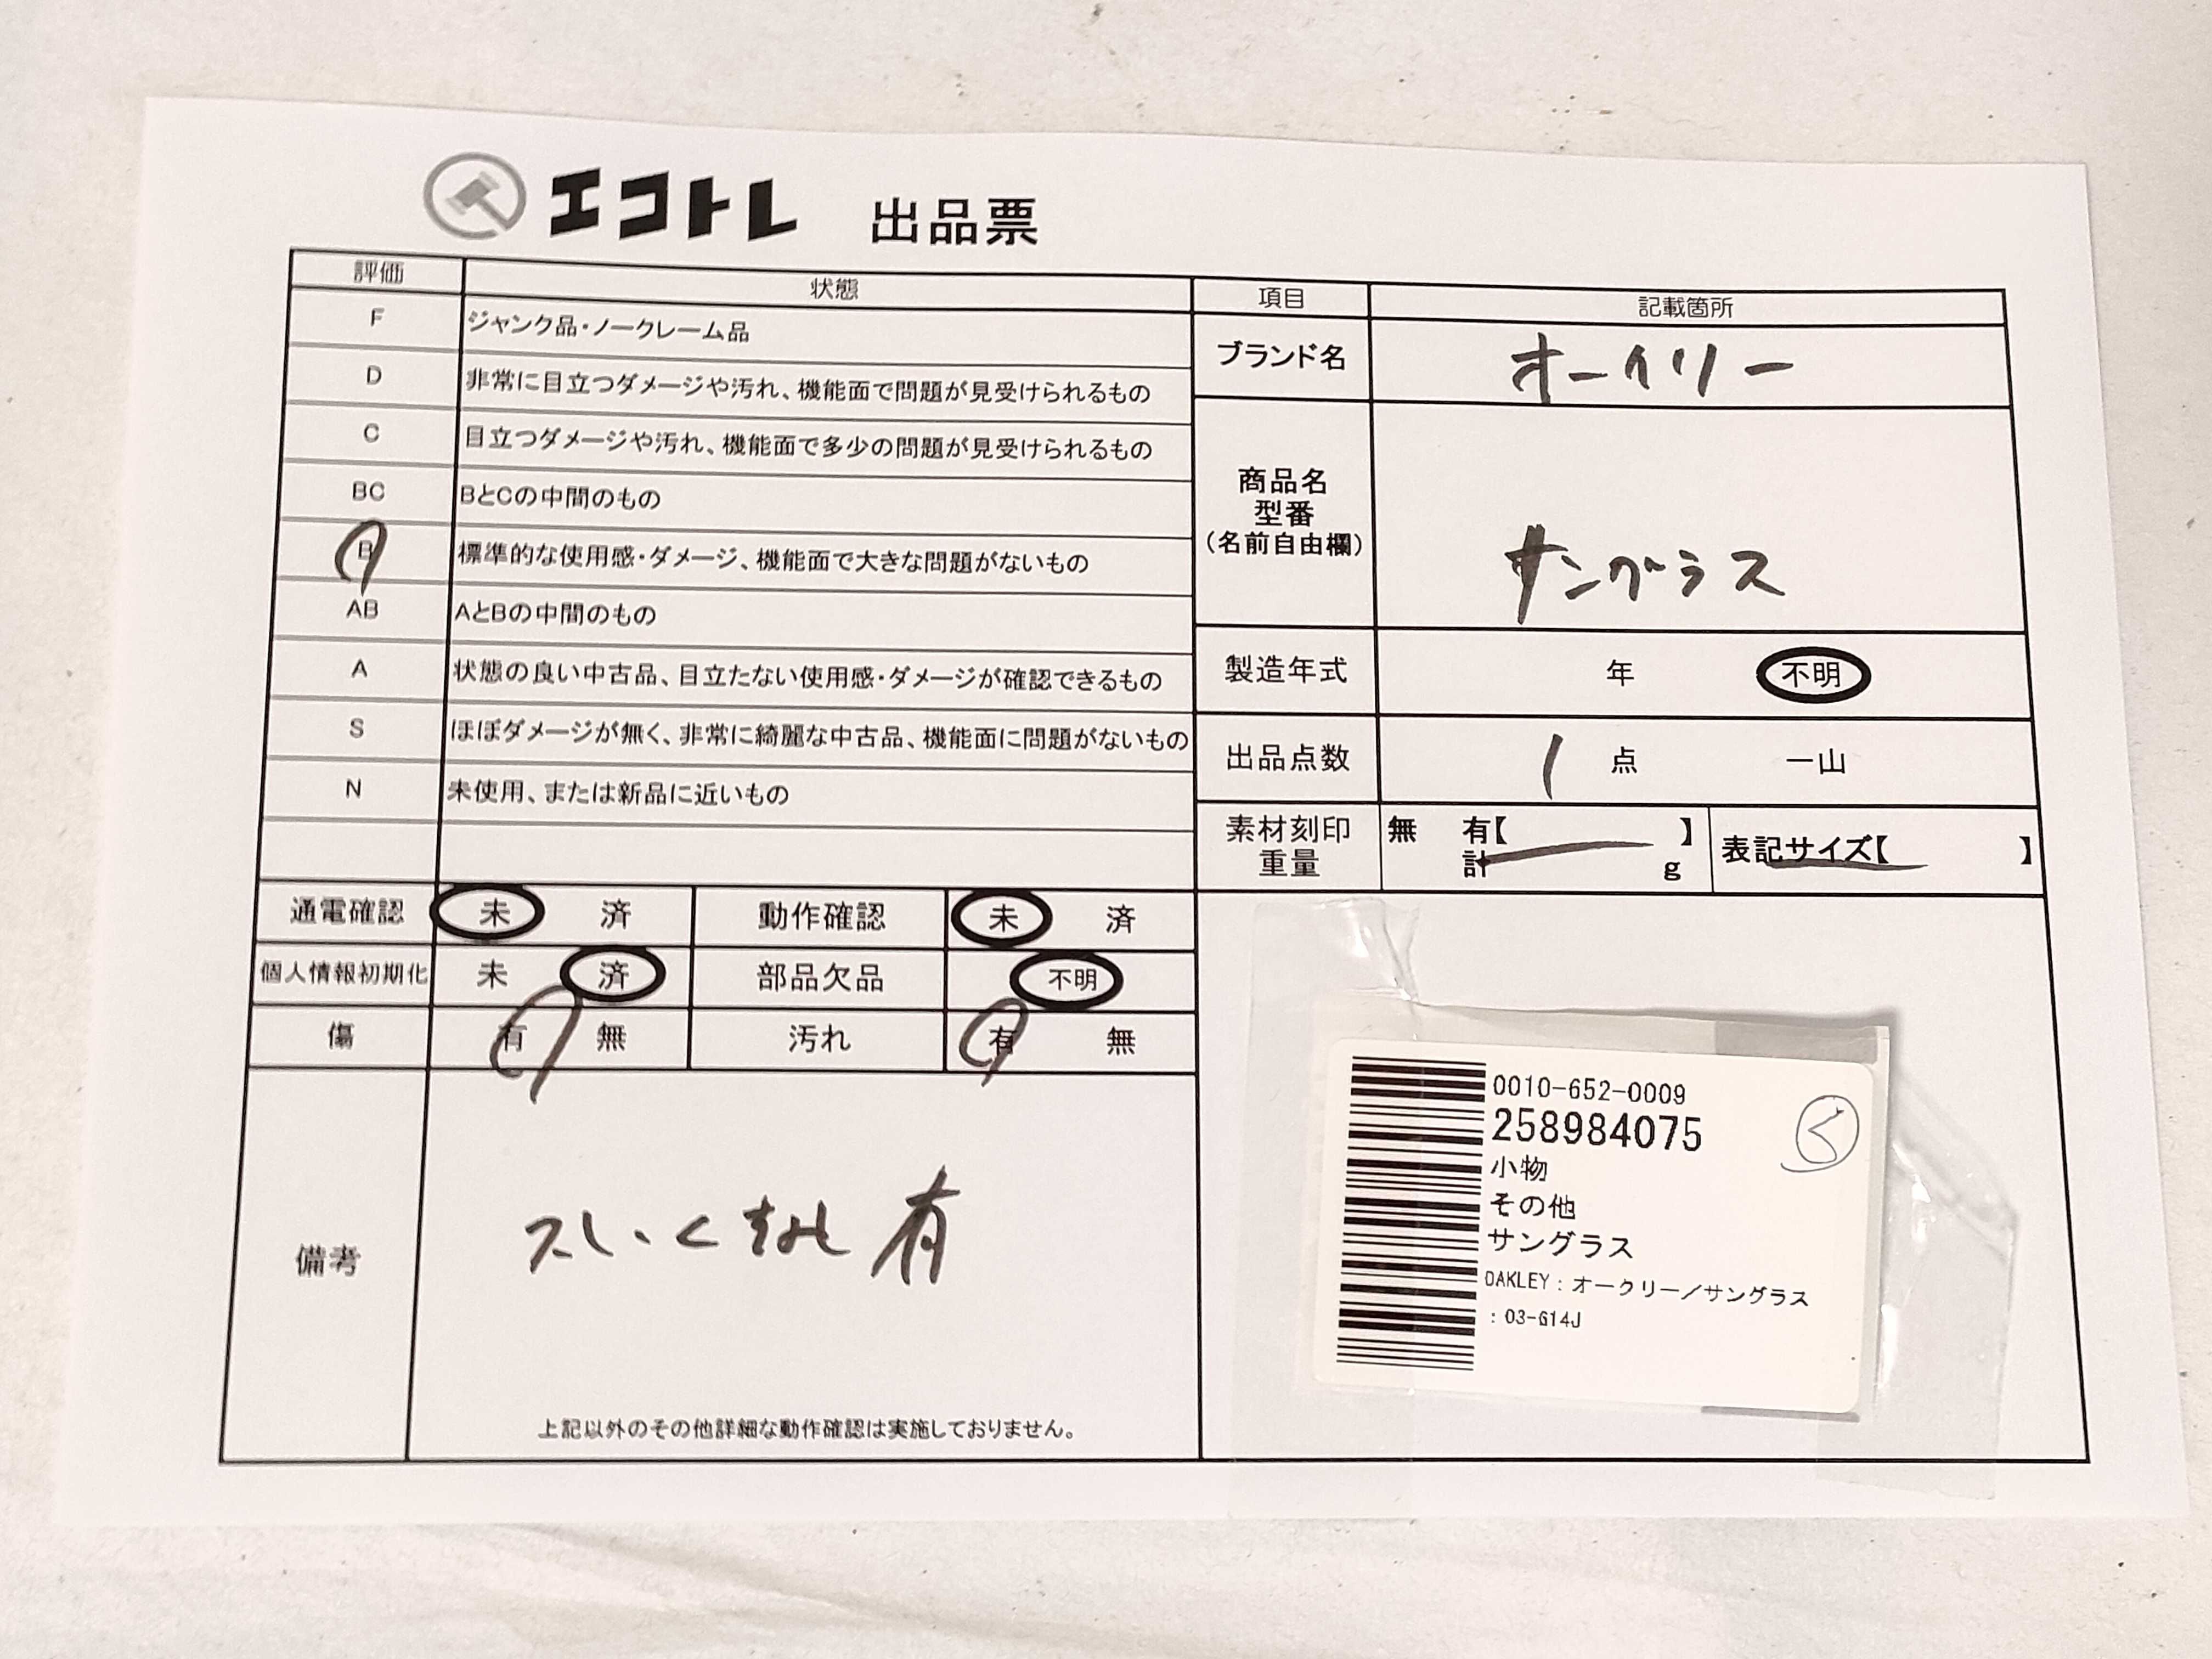 エコトレ 出品票
評価 状態
F ジャンク品・ノークレーム品
D 非常に目立つダメージや汚れ、機能面で問題が見受けられるもの
C 目立つダメージや汚れ、機能面で多少の問題が見受けられるもの
BC BとCの中間のもの
B 標準的な使用感・ダメージ、機能面で大きな問題がないもの
AB AとBの中間のもの
A 状態の良い中古品、目立たない使用感・ダメージが確認できるもの
S ほぼダメージが無く、非常に綺麗な中古品、機能面に問題がないもの
N 未使用、または新品に近いもの
項目 記載箇所
ブランド名 オークリー
商品名
型番
(名前自由欄)
サングラス
製造年式 年 不明
出品点数 1 点 一山
素材刻印 無 有【 】
重量 計 g
表記サイズ【 】
通電確認 未 済 動作確認 未 済
個人情報初期化 未 済 部品欠品 不明
傷 有 無 汚れ 有 無
備考
有
上記以外のその他詳細な動作確認は実施しておりません。
0010-652-0009
258984075
小物
その他
サングラス
OAKLEY：オークリー／サングラス
：03-614J